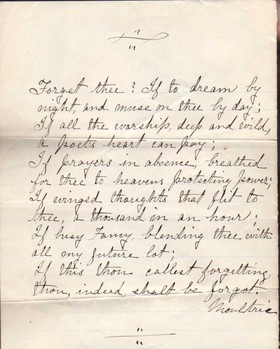 Forget thee? If to dream by
night, and muse on thee by day;
If all the worship, deep and wild,
a poets heart can pay;
If prayers in absence, breathed
for thee to heavens protecting power;
If winged thoughts that flit to
thee, a thousand in an hour;
If busy Fancy blending thee with
all my future lot;
If this thou callest forgetting
thou, indeed shalt be forgot."
Moultrie